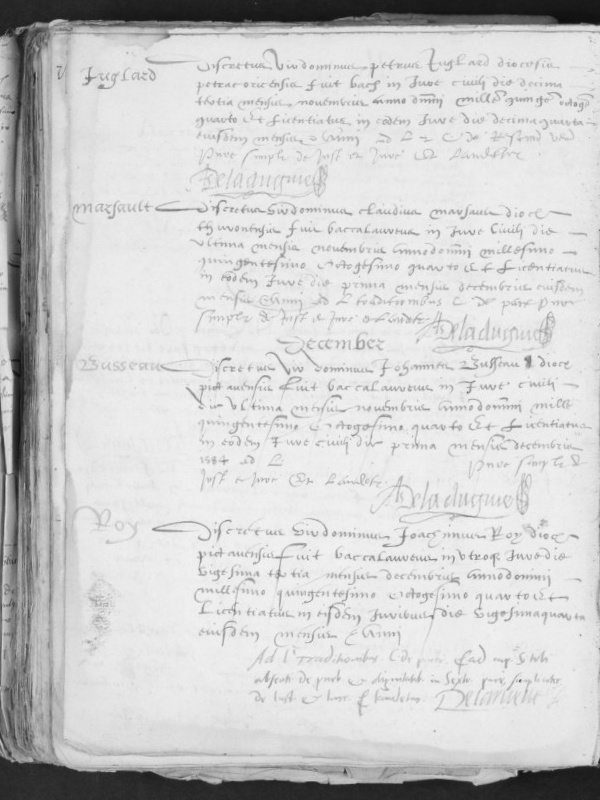 Juglard
Discretus vir dominus petrus Juglard diocesis
petracoricensis fuit bach in Jure civili die decima
tertia mensis novembris anno domini mille quinge octoge
quarto Et Licentiatus in eodem Jure die decimaquarta
eiusdem mensis & anni ad L
pure simplr de Just et Jure
Deladugnie
Marsault
Discretus vir dominus claudius marsault dioce
thuronensis fuit baccalaureus in Jure Civili die
ultima mensis novembris anno domini millesimo
quingentesimo Octogesimo quarto Et Licentiatus
in eodem Jure die prima mensis decembris eiusdem
mensis & anni ad L traditionibus C de pact pure
simplr de Just et Jure
Deladugnie
December
Busseau
Discretus vir dominus Johannes Busseau dioce
pictavensis fuit baccalaureus in Jure civili
die ultima mensis novembris anno domini mille
quingentesimo Octogesimo quarto Et Licentiatus
in eodem Jure civili die prima mensis decembris
1584 ad L pure simplr
Just et Jure
Deladugnie
Roy
Discretus vir dominus Joachimus Roy dioce
pictavensis fuit baccalaureus in utroq Jure die
vigesima tertia mensis decembris anno domini
millesimo quingentesimo Octogesimo quarto Et
Licentiatus in eisdem Juribus die vigesimaquarta
eiusdem mensis & anni
Ad L traditionibus C de pact Et ad
de pure simpliciter
de Just et Jure